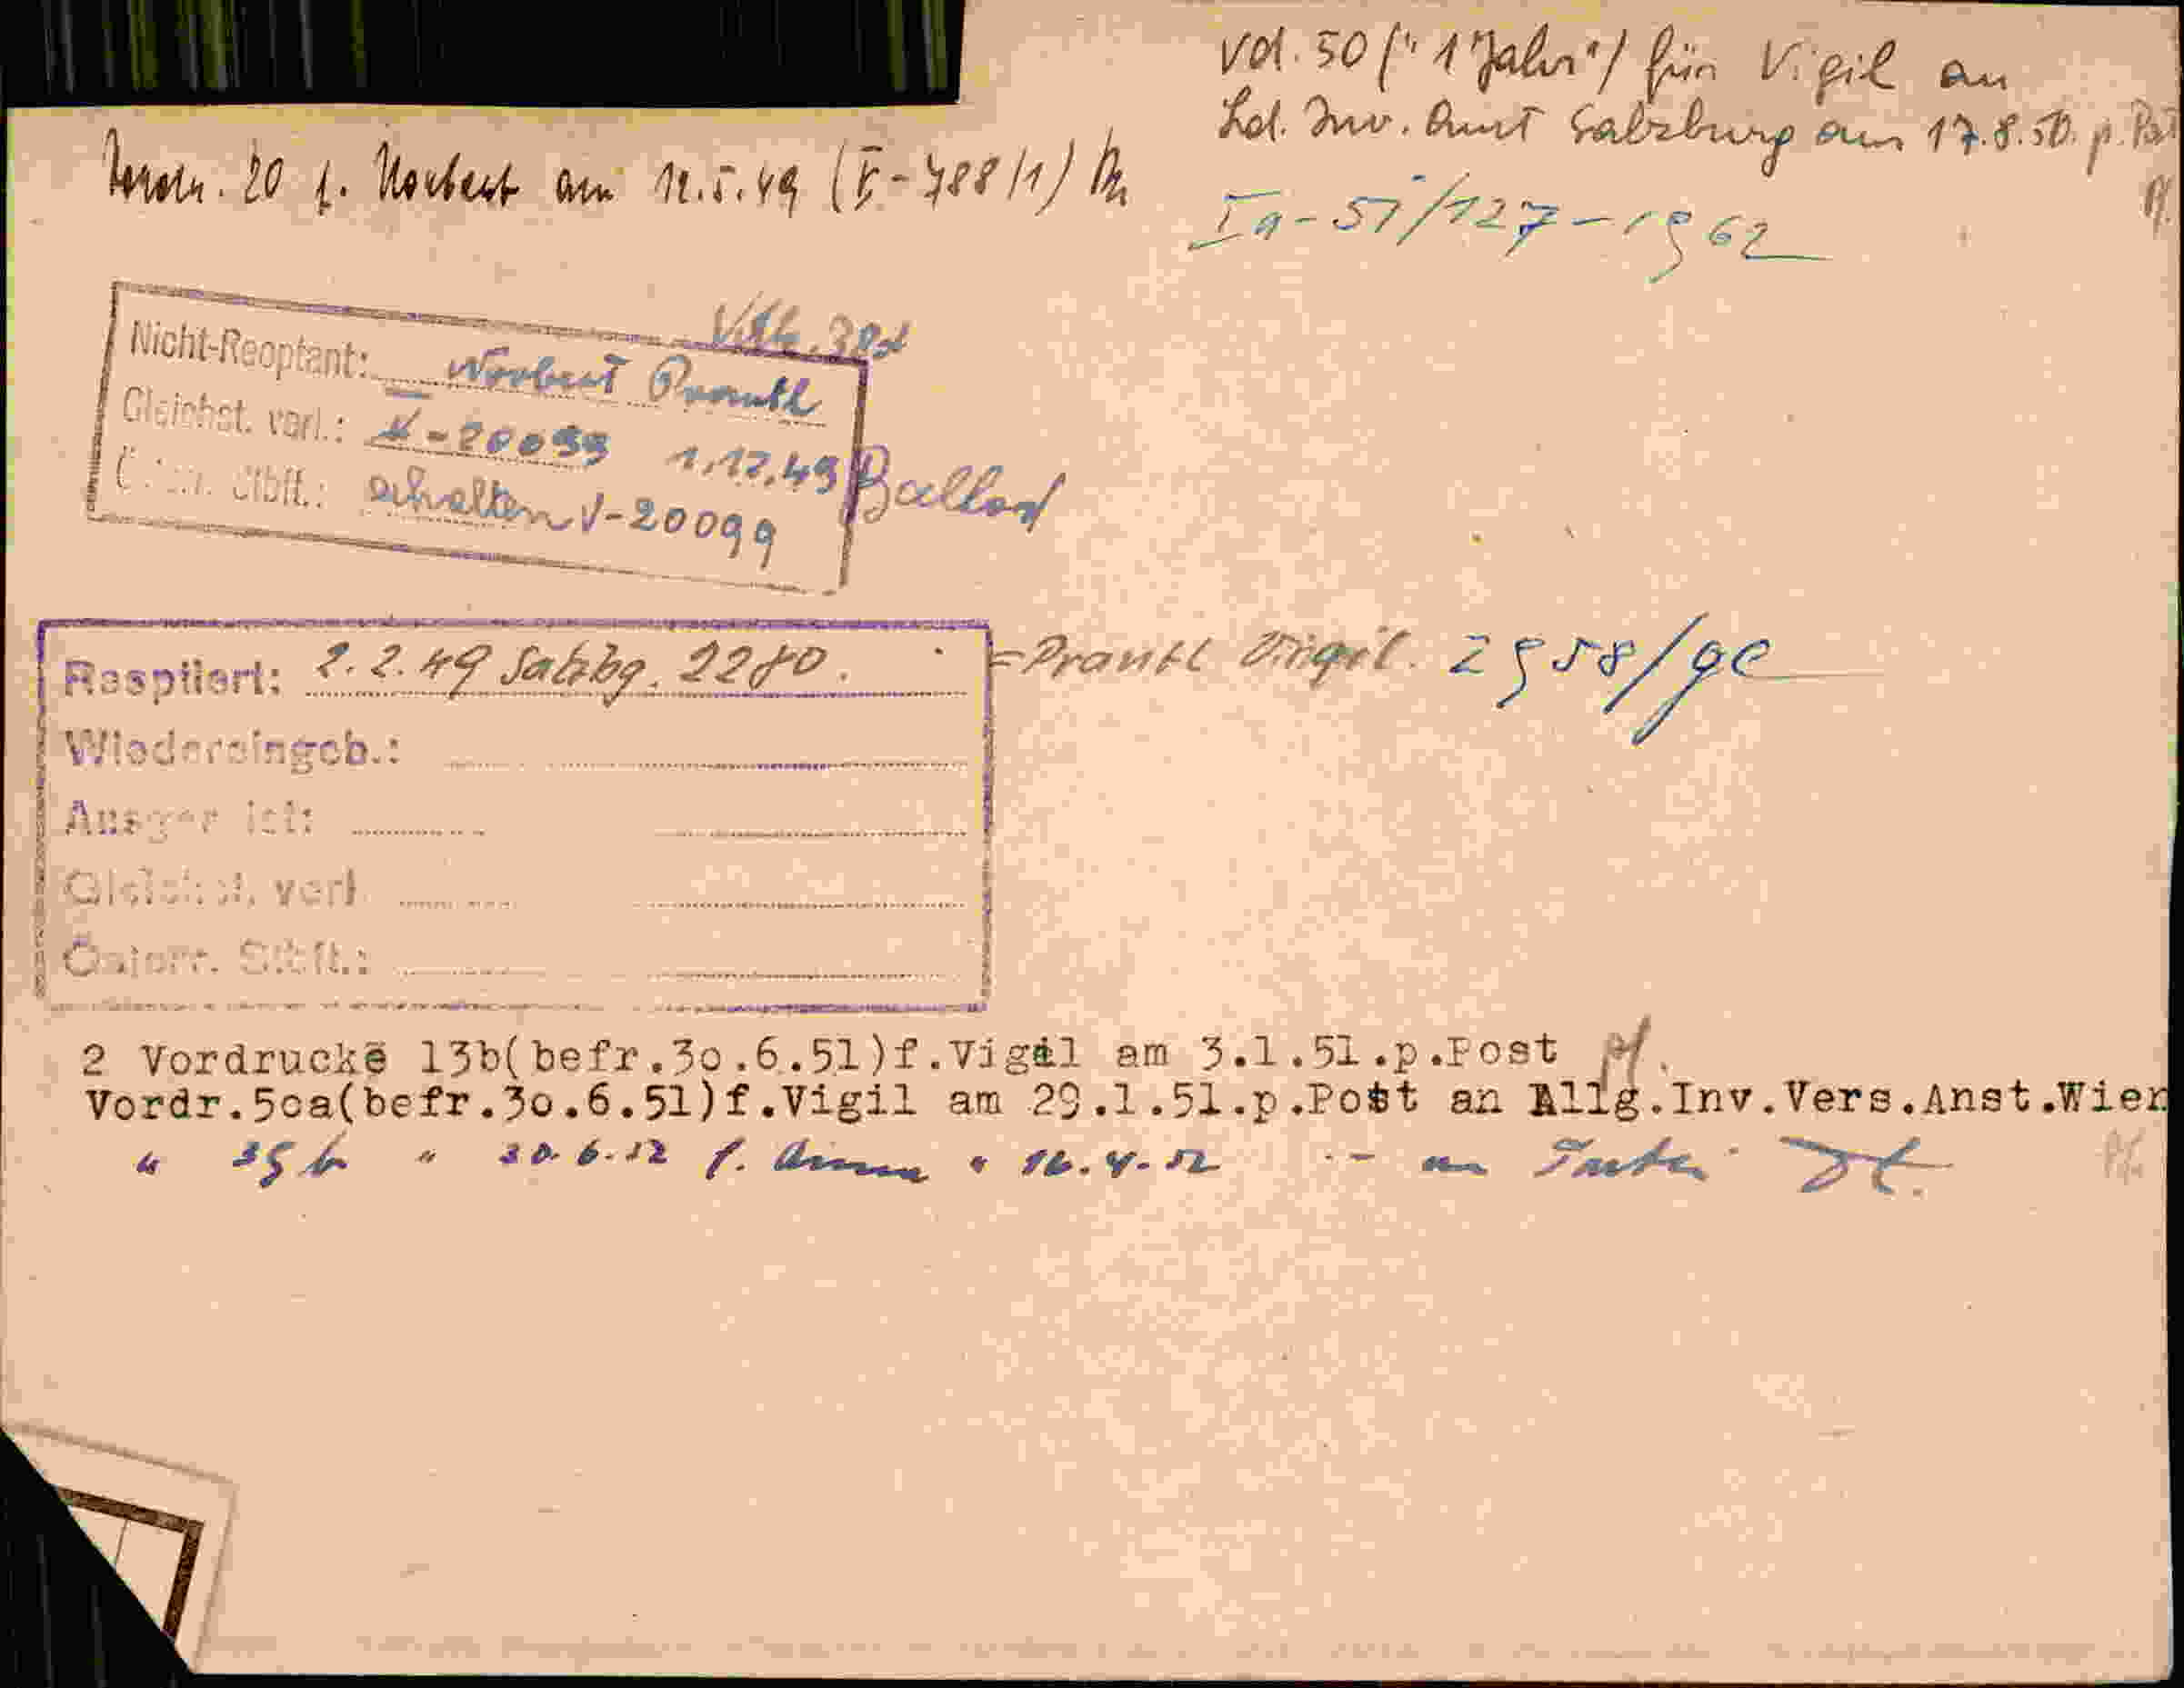 Vd. 50 ("1 Jahr") für Vigil an
Ld. Inv. Amt Salzburg am 17.8.50. p. Post
Pf.
Vordr. 20 f. Norbert am 12.5.49 (V-788/1)
Ia-51/127-1962
Nicht-Reoptant: Norbert Prantl
Gleichst. verl.: V-20099 1.12.49
Österr. Stbft.: erhalten V-20099
Reoptiert: 2.2.49 Salzbg. 2280. = Prantl Virgil. 2958/ge
Wiedereingeb.:
Gleichst. verl.
Österr. Stbft.:
2 Vordrucke 13b(befr.3o.6.51)f.Vigil am 3.1.51.p.Post Pf.
Vordr.5oa(befr.30.6.51)f.Vigil am 29.1.51.p.Post an Allg.Inv.Vers.Anst.Wien
" 35 b " 30.6.52 f. Anna " 16.4.52 an Partei
Pf.